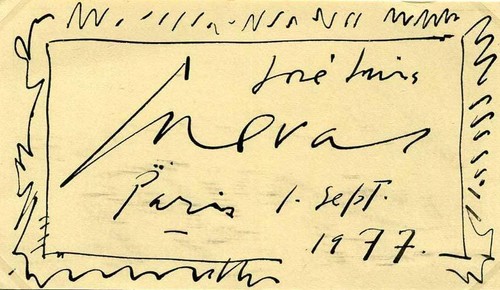 José Luis
Cuevas
Paris 1. Sept.
1977.